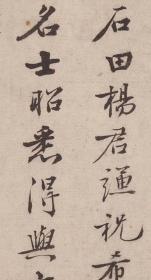 石田楊君謙祝希
名士昭悉得與